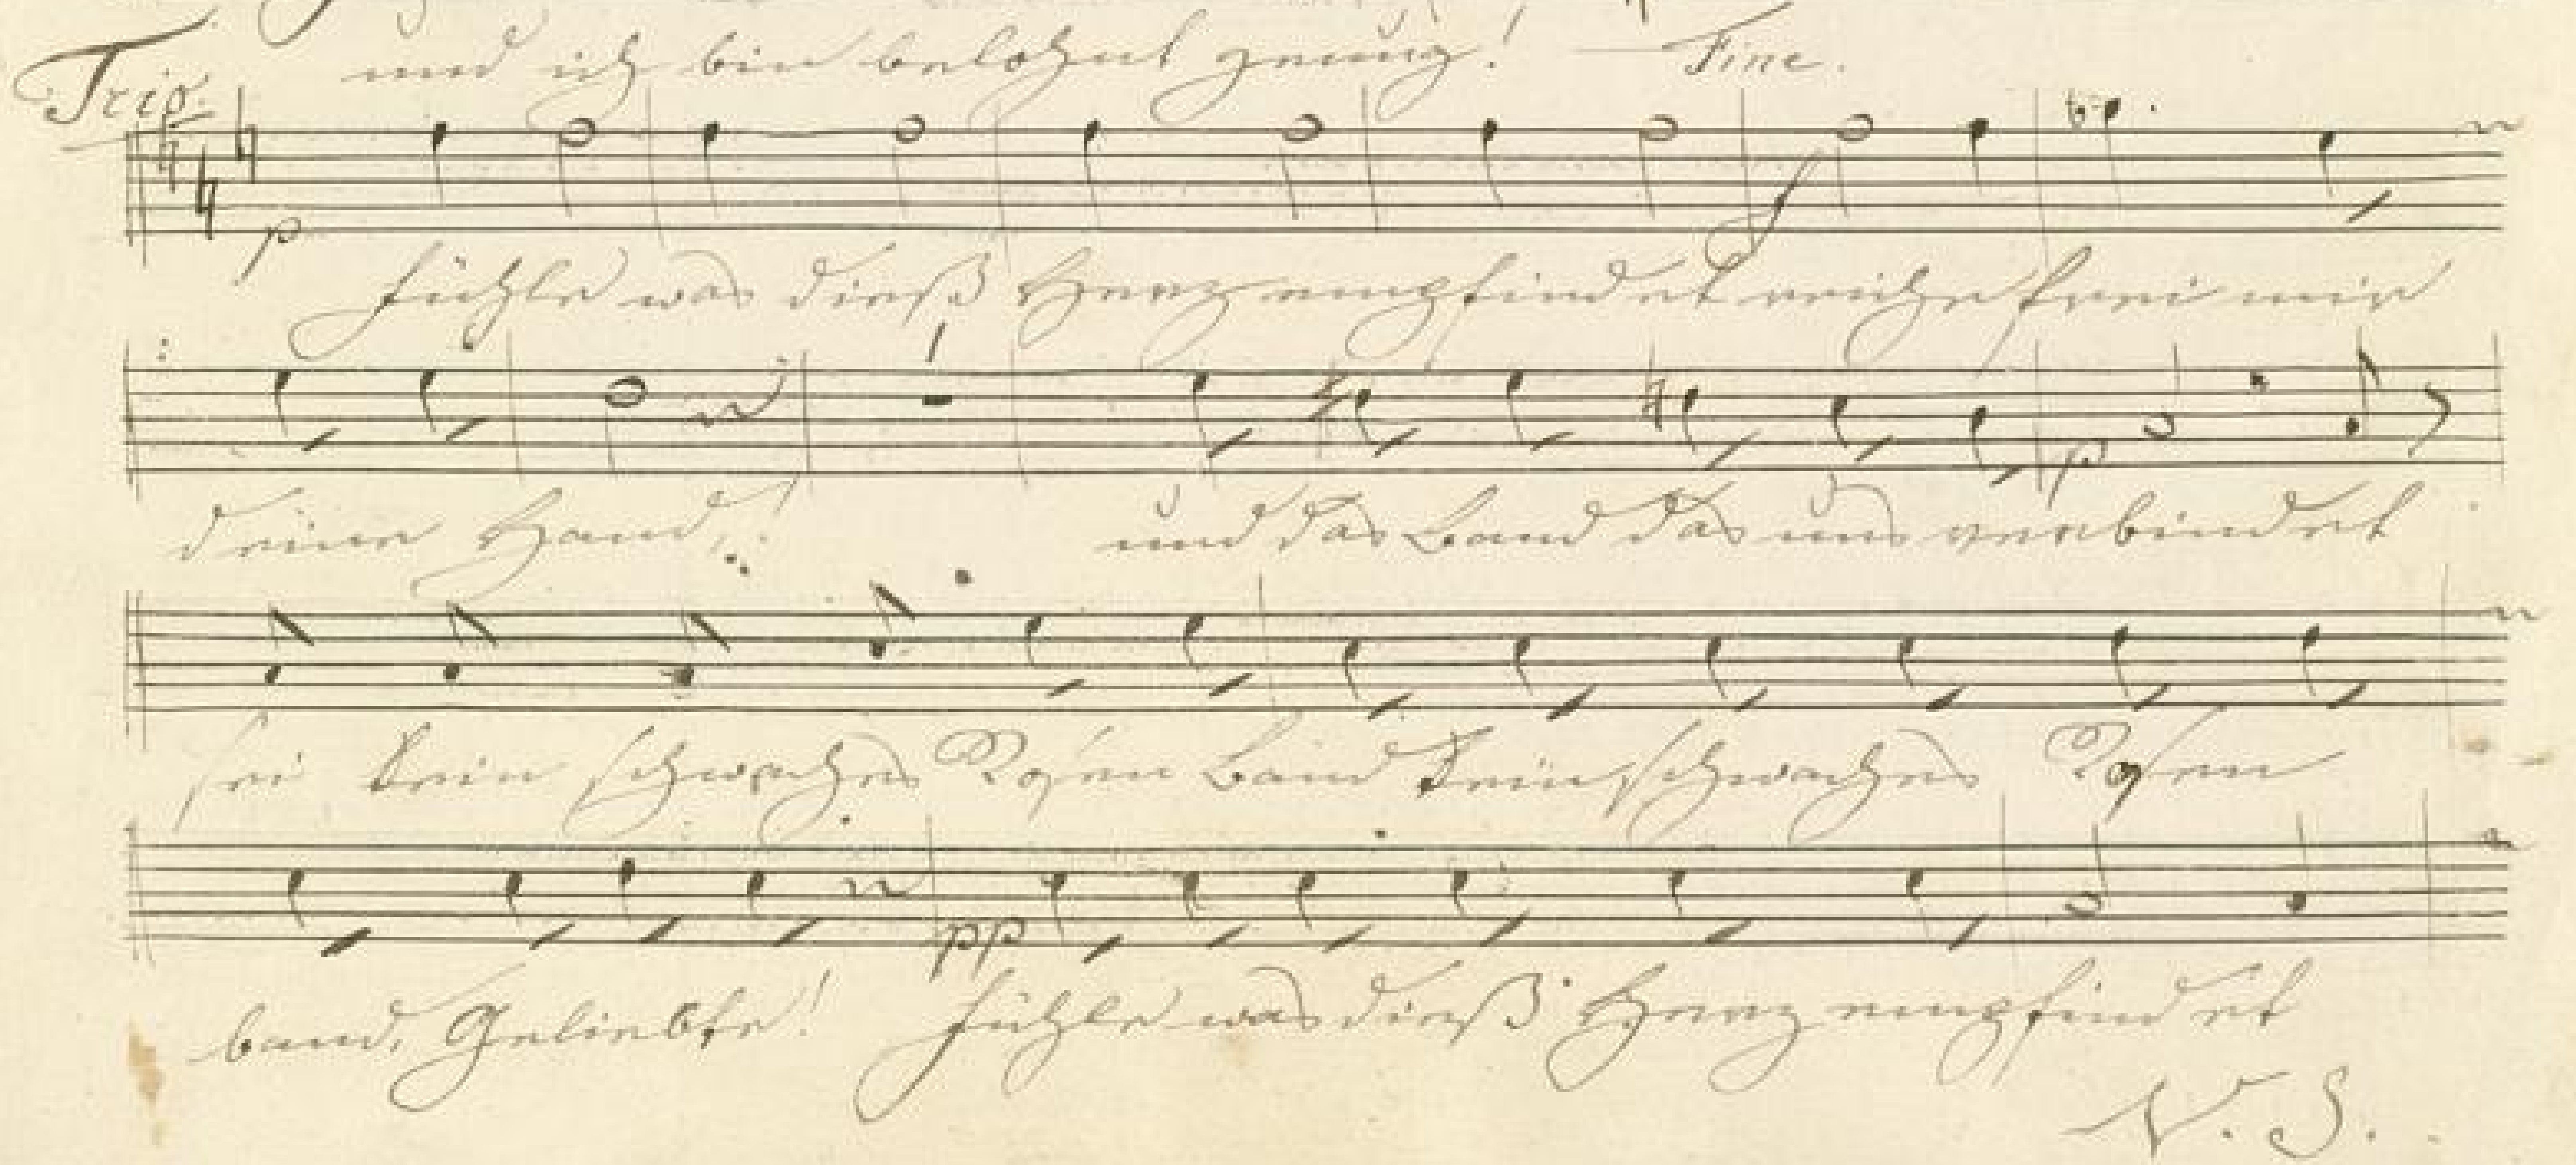 und ich bin belohnt genug! — Fine.
Trio.
p f
Fühle was dieß Herz empfindet reiche frei mir
p
deine Hand,! und das Band das uns verbindet
sei kein schwaches Rosen Band kein schwaches Rosen
pp
band, Geliebte! Fühle was dieß Herz empfindet
V. S.